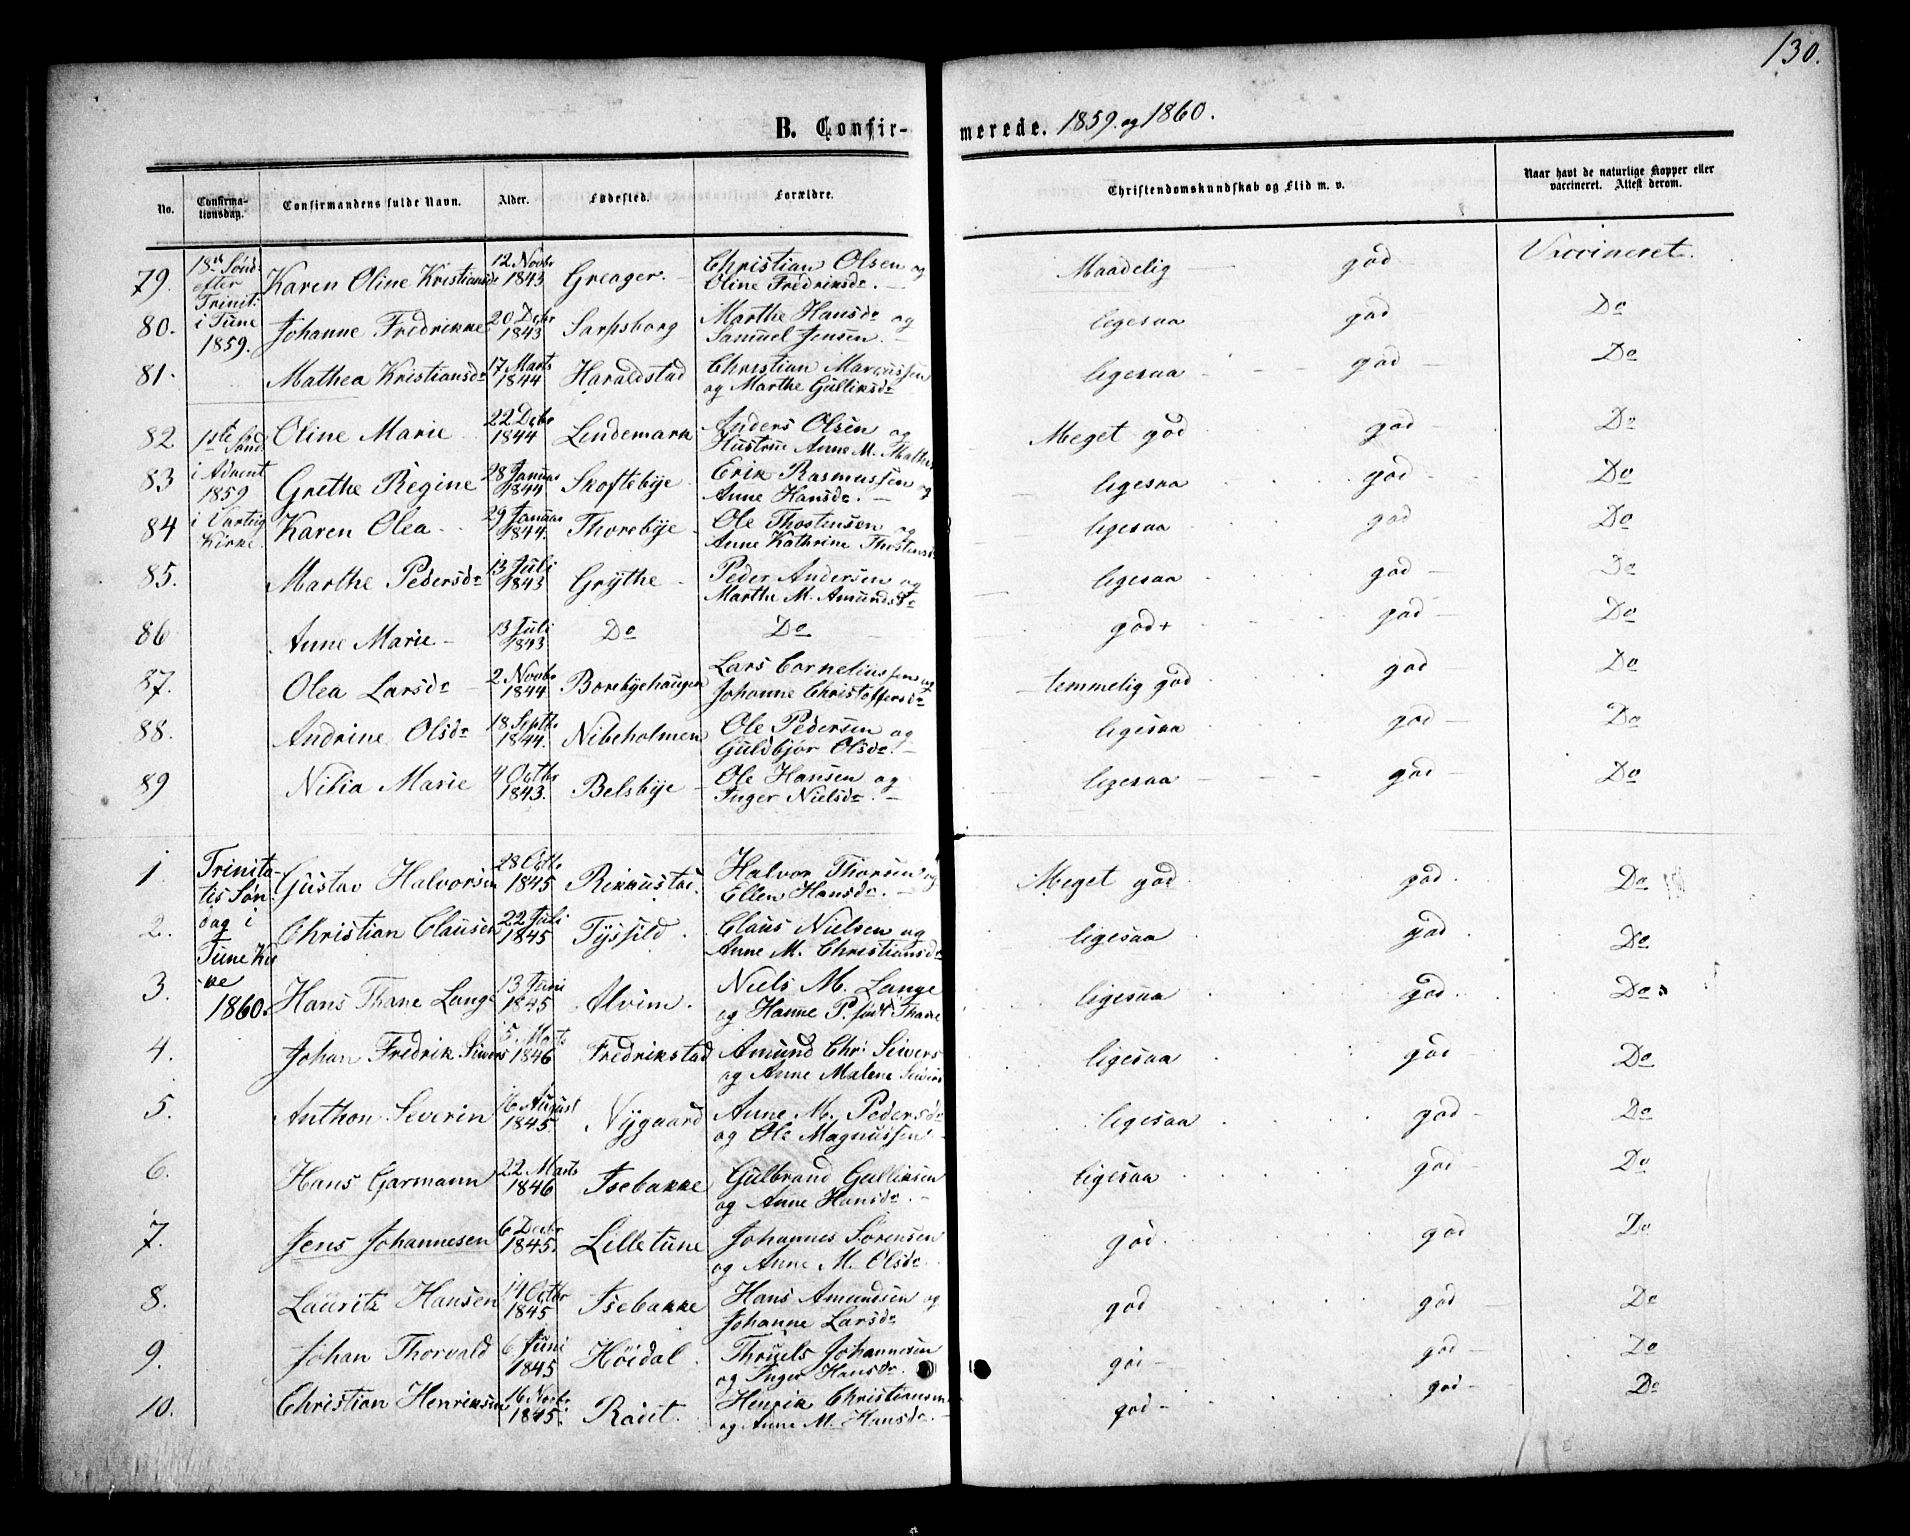 130.
B. Confirmerede. 1859. og 1860.
No. Confirmationsdag. Confirmandens fulde Navn. Alder. Fødested. Forældre. Christendomskundskab og Flid m. v. Naar havt de naturlige Kopper eller vaccineret. Attest derom.
79. 18de Sönd. efter Trinit: i Tune 1859. Karen Oline Kristiansdr 12 Novbr 1843 Greager. Christian Olsen og Oline Fredriksdr. Maadelig god Vaccineret.
80. Johanne Fredrikke 20 Debr 1843 Sarpsborg Marthe Hansdr og Samuel Jensen. ligesaa god Do
81. Mathea Kristiansdr 17 Marts 1844 Haraldstad Christian Marcussen og Marthe Gulliksdr ligesaa god Do
82 1ste Sönd i Advent 1859 i Varteig Kirke. Oline Marie 22 Debr 1844 Lindemark Anders Olsen og Hustrue Anne M. Meget god god Do
83 Grethe Regine 28 Januar 1844 Skoftebye Erik Rasmussen og Anne Hansdr. ligesaa god Do
84 Karen Olea 29 Januar 1844. Thorebye Ole Thostensen og Anne Kathrine Thostensdr ligesaa god Do
85. Marthe Pedersdr 13 Juli 1843 Grythe Peder Andersen og Marthe M. Amundsdr ligesaa god Do
86 Anne Marie 13 Juli 1843 Do Do god+ god Do
87. Olea Larsdr 2 Novbr 1844 Borebyehaugen Lars Corneliussen og Johanne Christoffersdr temmelig god god Do
88. Andrine Olsdr 18 Septbr 1844. Nibeholmen Ole Pedersen og Guldbjør Olsdr. ligesaa god Do
89 Nilia Marie 4 Octbr 1843. Belsbye Ole Hansen og Inger Nielsdr. ligesaa god Do
1 Trinitatis Søndag i Tune Kirke 1860. Gustav Halvorsen 28 Octbr 1845 Rikkustad. Halvor Thorsen og Ellen Hansdr. Meget god god. Do
2. Christian Clausen 22 Juli 1845 Tyssild. Claus Nielsen og Anne M. Christiansdr ligesaa god Do
3. Hans Thane Lange 13 Juni 1845 Alvim. Niels M. Lange og Hanne P. född Thane ligesaa god. Do
4. Johan Fredrik Siwers 5. Marts 1846 Fredrikstad Amund Chr: Siwers og Anne Malene Siwers ligesaa god Do
5. Anthon Severin 16 August 1845. Nygaard Anne M. Pedersdr og Ole Magnussen ligesaa god Do
6. Hans Garmann 22 Marts 1846 Isebakke Gulbrand Gulliksen og Anne Hansdr. ligesaa god Do
7. Jens Johannesen 6 Decbr 1845. Lilletune Johannes Sörensen og Anne M. Olsdr. god. god Do
8. Lauritz Hansen 14 Octbr 1845 Isebakke Hans Amundsen og Johanne Larsdr god god Do
9. Johan Thorvald 6 Juni 1845 Höidal. Thruels Johannesen og Inger Hansdr. god god Do
10. Christian Henriksen 16 Novbr 1845. Rödit. Henrik Christiansen og Anne M. Hansdr. god god Do